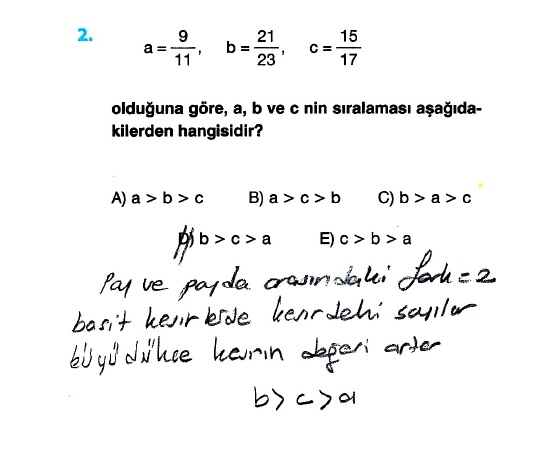 2.
a = 9/11, b = 21/23, c = 15/17
olduğuna göre, a, b ve c nin sıralaması aşağıda-
kilerden hangisidir?
A) a > b > c B) a > c > b C) b > a > c
D) b > c > a E) c > b > a
Pay ve payda arasındaki fark = 2
basit kesirlerde kesirdeki sayılar
büyüdükçe kesrin değeri artar
b > c > a